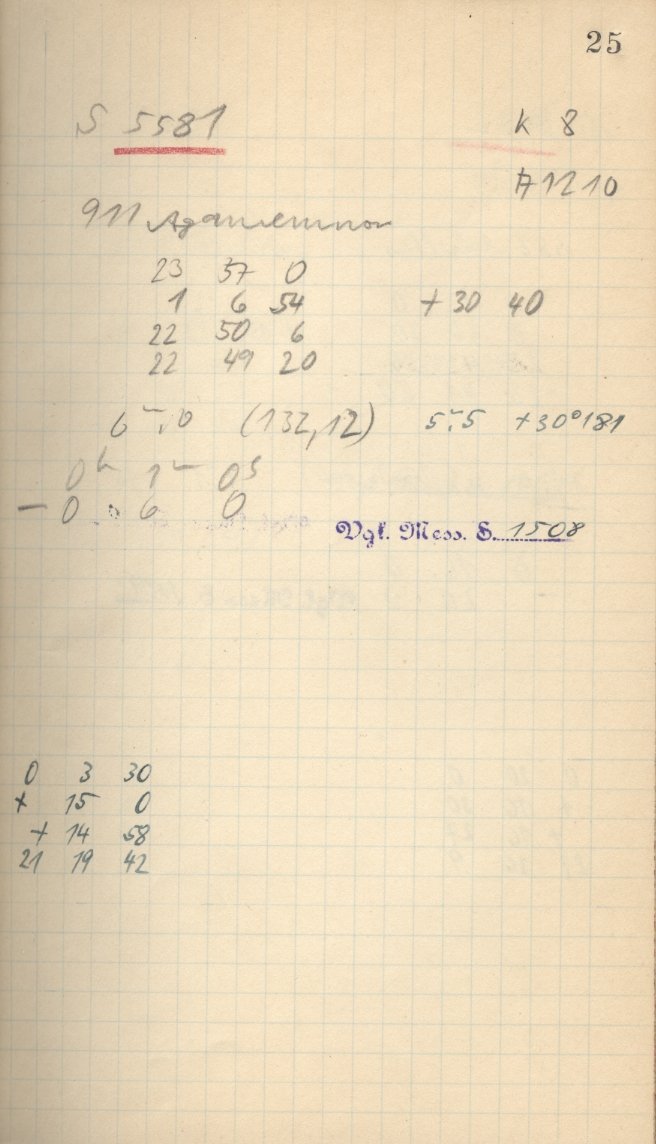 25
S 5581
K 8
A 1210
911 Agamemnon
23 37 0
1 6 54 + 30 40
22 50 6
22 49 20
6ᵐ,0 (132,12) 5ᵐ,5 + 30° 181
0ʰ 1ᵐ 0ˢ
– 0 6 0
Vgl. Mess. S. 1508
0 3 30
+ 15 0
+ 14 58
21 19 42